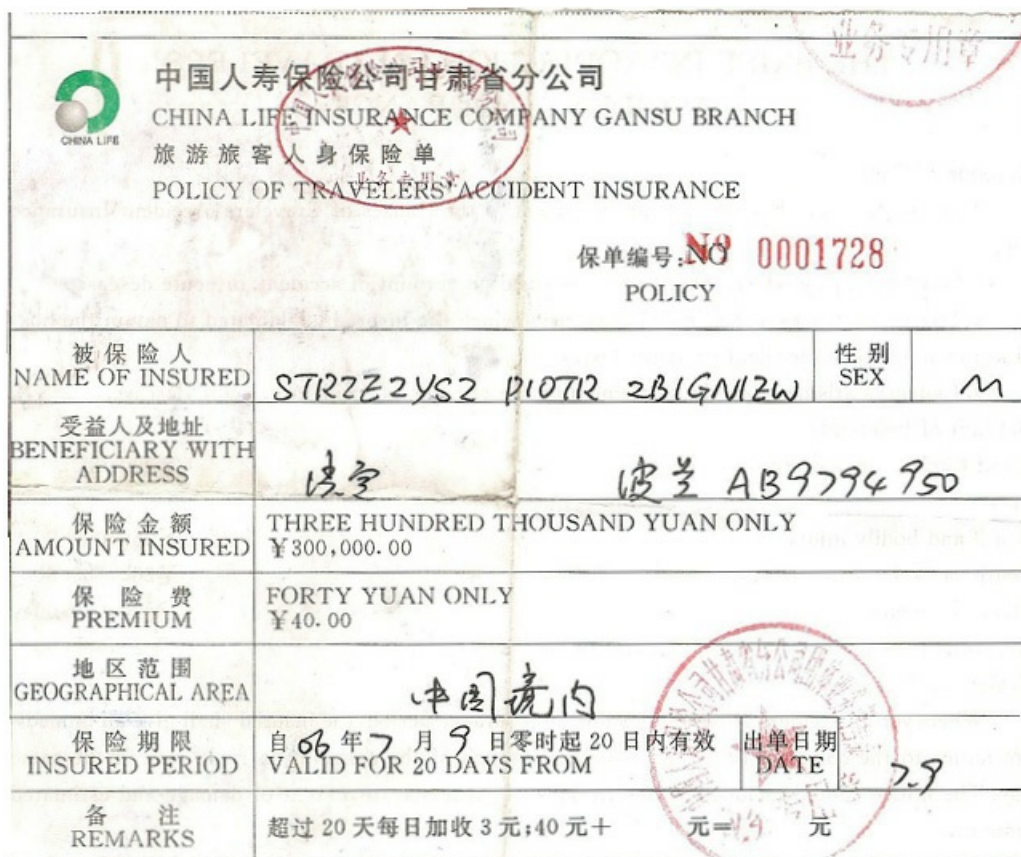 业务专用章
中国人寿保险公司甘肃省分公司
CHINA LIFE INSURANCE COMPANY GANSU BRANCH
CHINA LIFE
旅游旅客人身保险单
POLICY OF TRAVELERS' ACCIDENT INSURANCE
保单编号:NO № 0001728
POLICY
被保险人
NAME OF INSURED
STRZEZYSZ PIOTR ZBIGNIEW
性别
SEX
M
受益人及地址
BENEFICIARY WITH
ADDRESS
法定 波兰 AB9794950
保险金额
AMOUNT INSURED
THREE HUNDRED THOUSAND YUAN ONLY
¥300,000.00
保险费
PREMIUM
FORTY YUAN ONLY
¥40.00
地区范围
GEOGRAPHICAL AREA
中国境内
保险期限
INSURED PERIOD
自06年7月9日零时起20日内有效
VALID FOR 20 DAYS FROM
出单日期
DATE
7.9
备注
REMARKS
超过20天每日加收3元;40元+ 元= 元